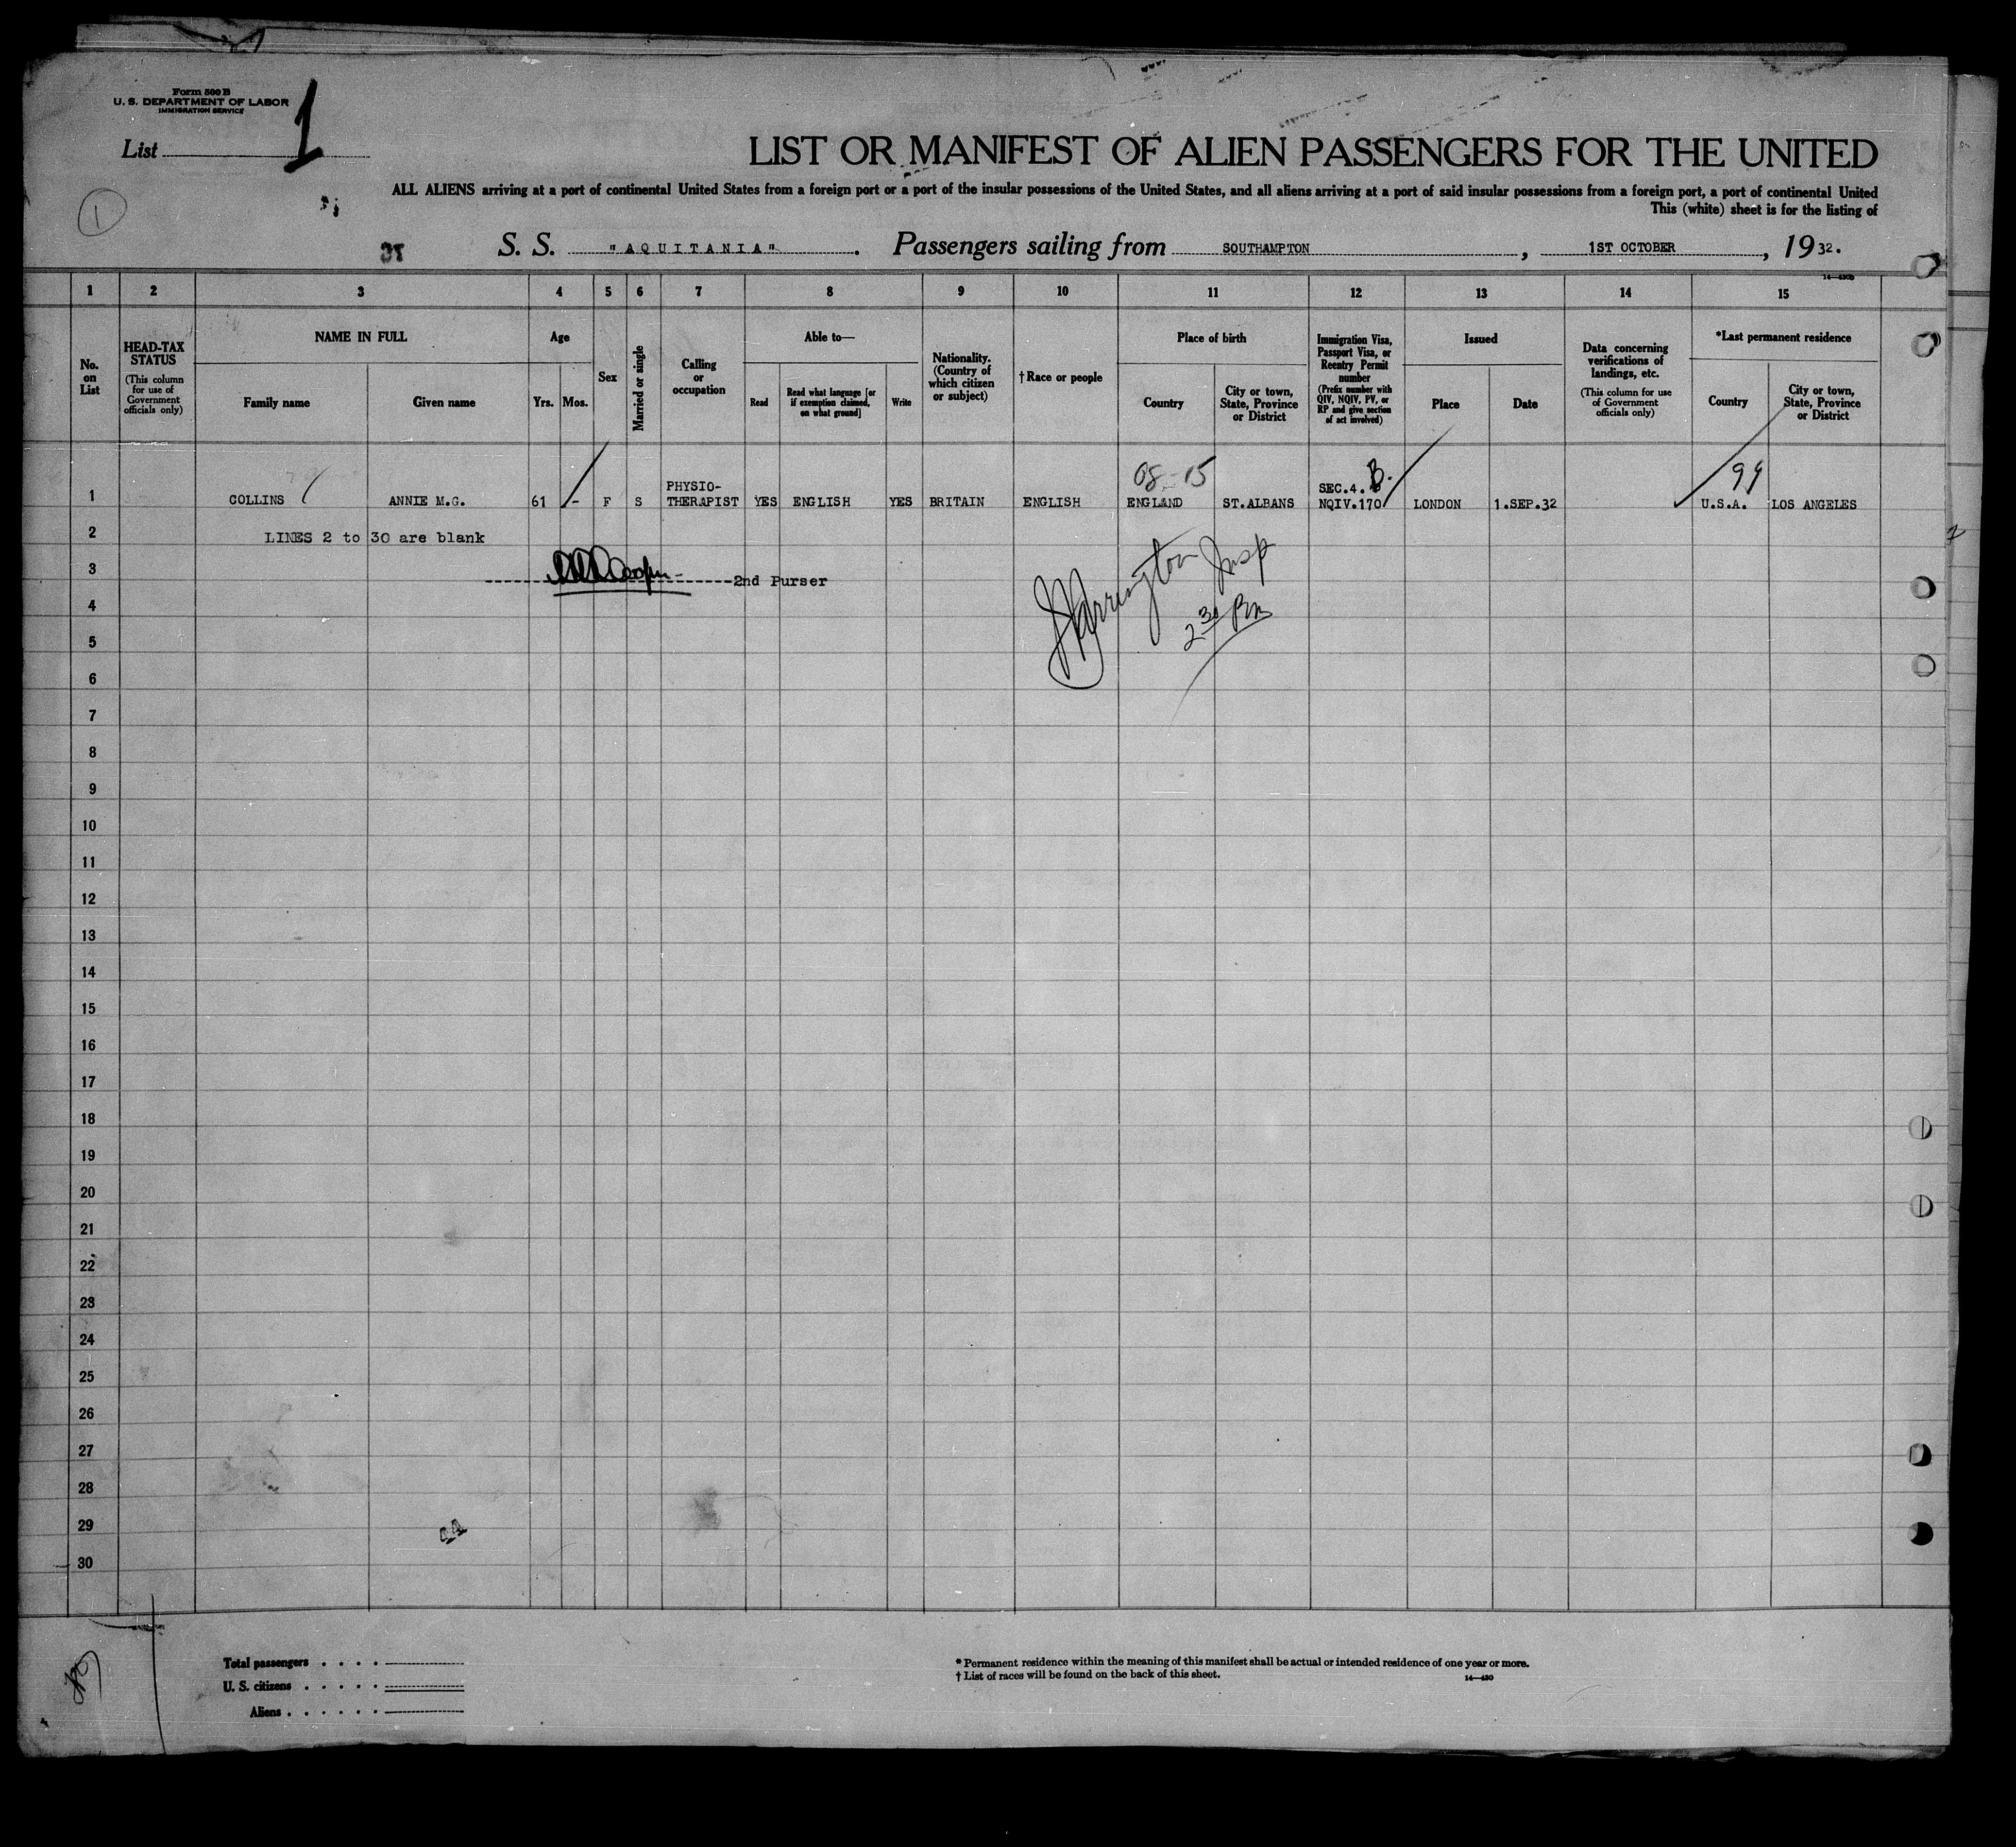 Form 500 B
U. S. DEPARTMENT OF LABOR
IMMIGRATION SERVICE
List 1
1
LIST OR MANIFEST OF ALIEN PASSENGERS FOR THE UNITED
ALL ALIENS arriving at a port of continental United States from a foreign port or a port of the insular possessions of the United States, and all aliens arriving at a port of said insular possessions from a foreign port, a port of continental United
This (white) sheet is for the listing of
S. S. "AQUITANIA". Passengers sailing from SOUTHAMPTON, 1ST OCTOBER, 1932.
1 2 3 4 5 6 7 8 9 10 11 12 13 14 15
No. on List
HEAD-TAX STATUS
(This column for use of Government officials only)
NAME IN FULL
Family name
Given name
Age
Yrs.
Mos.
Sex
Married or single
Calling or occupation
Able to—
Read
Read what language [or if exemption claimed, on what ground]
Write
Nationality. (Country of which citizen or subject)
†Race or people
Place of birth
Country
City or town, State, Province or District
Immigration Visa, Passport Visa, or Reentry Permit number
(Prefix number with QIV, NQIV, PV, or RP and give section of act involved)
Issued
Place
Date
Data concerning verifications of landings, etc.
(This column for use of Government officials only)
*Last permanent residence
Country
City or town, State, Province or District
08-15
B.
99
1 COLLINS ANNIE M.G. 61 - F S PHYSIO-THERAPIST YES ENGLISH YES BRITAIN ENGLISH ENGLAND ST.ALBANS SEC.4. NQIV.170 LONDON 1.SEP.32 U.S.A. LOS ANGELES
2 LINES 2 to 30 are blank
3 2nd Purser
Insp
2 30 Pm
4
5
6
7
8
9
10
11
12
13
14
15
16
17
18
19
20
21
22
23
24
25
26
27
28
29
44
30
Total passengers
U. S. citizens
Aliens
* Permanent residence within the meaning of this manifest shall be actual or intended residence of one year or more.
† List of races will be found on the back of this sheet.
14—430